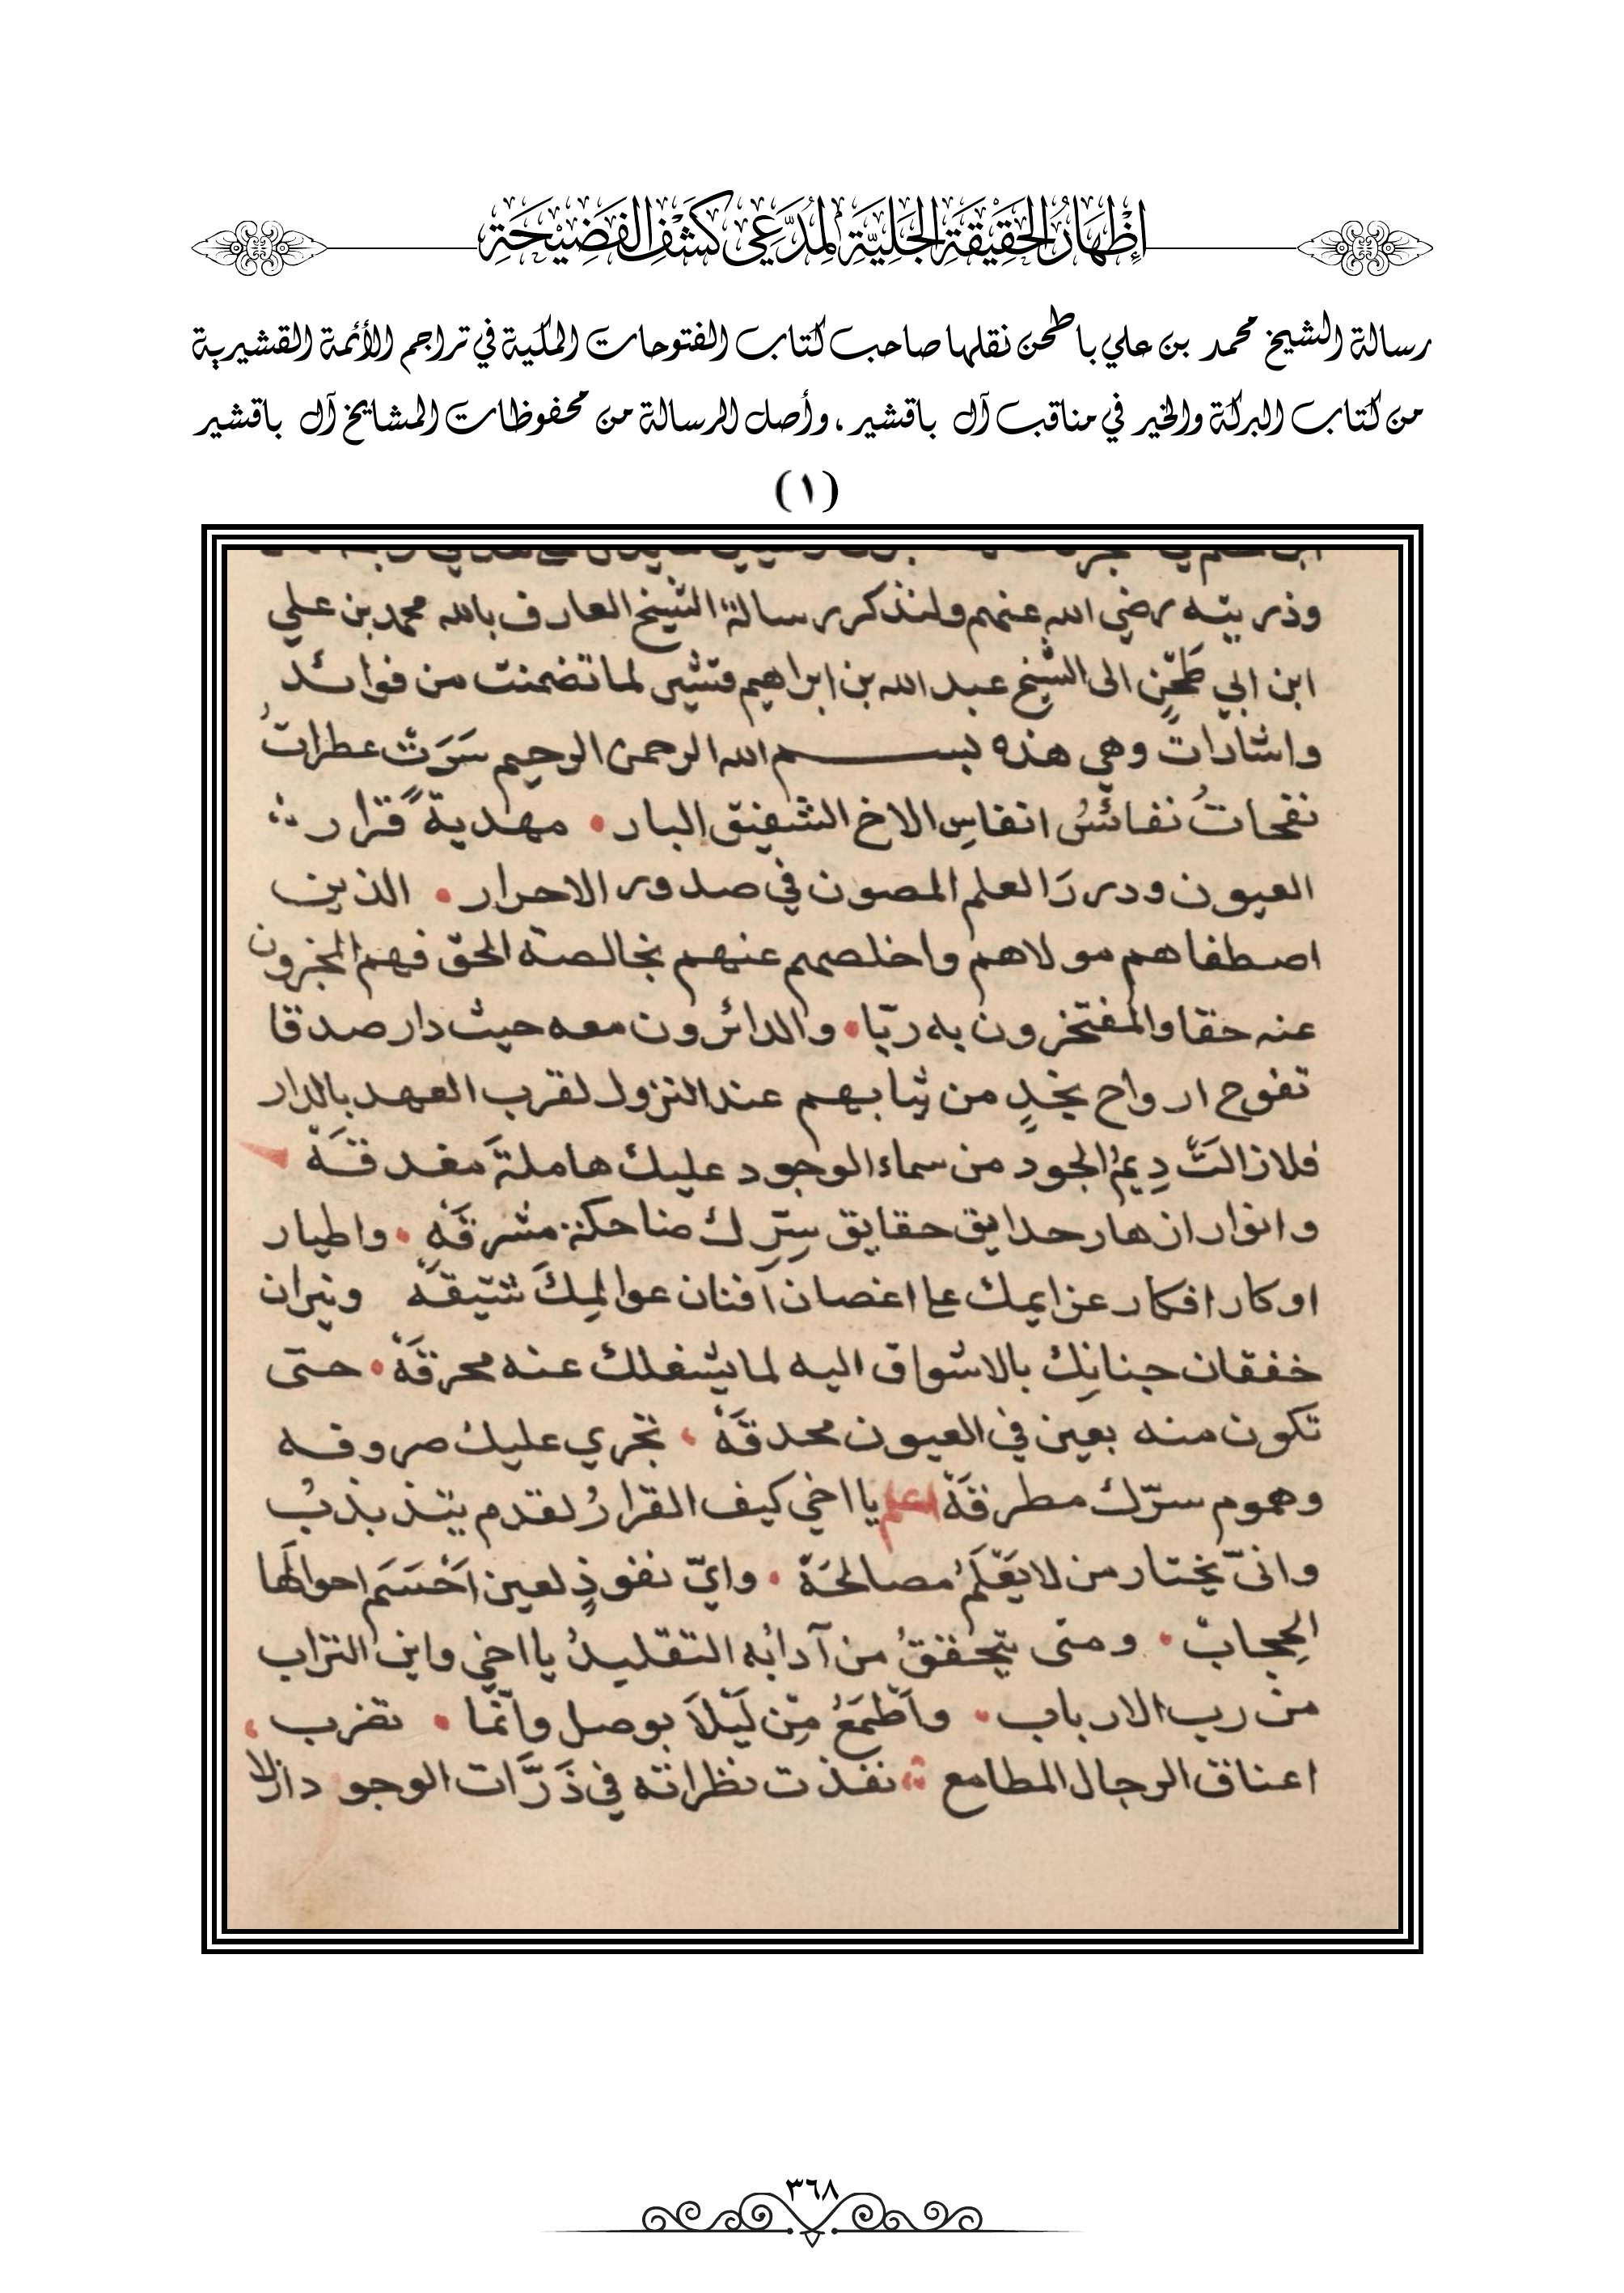 إِظْهَارُ الحَقِيْقَةِ الجَلِيَّةِ لِمُدَّعِي كَشْفِ الفَضِيْحَةِ
رسالة الشيخ محمد بن علي باطحن نقلها صاحب كتاب الفتوحات المكية في تراجم الأئمة القشيرية
من كتاب البركة والخير في مناقب آل باقشير، وأصل الرسالة من محفوظات المشايخ آل باقشير
(١)
وذريته رضي الله عنهم ولنذكر رسالة الشيخ العارف بالله محمد بن علي
ابن ابي طحن الى الشيخ عبد الله بن ابراهيم قشير لما تضمنت من فوائد
واشارات وهي هذه بسم الله الرحمن الرحيم سَرَتْ عطراتُ
نفحاتُ نفائسُ انفاسِ الاخ الشفيق البار • مهدية قرار
العيون ودررَ العلم المصون في صدور الاحرار • الذين
اصطفاهم مولاهم واخلصهم عنهم بخالصة الحق فهم المخبرون
عنه حقا والمفتخرون به ربّا • والدائرون معه حيث دار صدقا
تفوح ارواح نجدٍ من ثيابهم عند النزول لقرب العهد بالدار
فلا زالتّ دِيمُ الجود من سماء الوجود عليك هاملةَ مغدقَهْ
وانوار ازهار حدايق حقايق سِرّك ضاحكة مشرقَهْ • واطيار
اوكار افكار عزايمك على اغصان افنان عوالمِكَ شيقَهْ ونيران
خفقان جنانِك بالاشواق اليه لما يشغلك عنه محرقَهْ • حتى
تكون منه بعين في العيون محدقَهْ • تجري عليك صروفه
وهموم سرّك مطرقَهْ اعلم يا اخي كيف القرارُ لقدم يتذبذبُ
وانىّ يختار من لا يَعْلَمُ مصالحَهْ • وايّ نفوذٍ لعين احوالها
الحِجابْ • ومتى يتحققُ من آدابُه التقليدُ يا اخي واين التراب
من رب الارباب • وأَطْمَعُ مِن لَيْلَا بوصل وانّما • تضرب
اعناق الرجال المطامع نفذت نظراته في ذَرَّات الوجود ازلا
٣٦٨